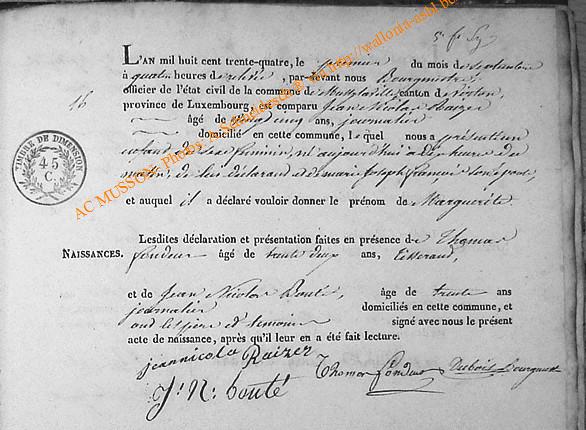 5e fe Sy
L'AN mil huit cent trente-quatre, le premier du mois de Septembre
à quatre heures de relevée, par-devant nous Bourgmestre,
officier de l'état civil de la commune de canton de Virton,
province de Luxembourg, est comparu Jean Nicolas Raizer
16
âgé de trente cinq ans, journalier
domicilié en cette commune, lequel nous a présenté un
enfant de sexe féminin, né aujourd'hui à sept heures du
matin, de lui déclarant et de marie Joseph son épouse
TIMBRE DE DIMENSION
45
C.
et auquel il a déclaré vouloir donner le prénom de Marguerite.
NAISSANCES.
Lesdites déclaration et présentation faites en présence de Thomas
fondeur âgé de trente deux ans, tisserand,
et de Jean Nicolas Bouté, âgé de trente ans
journalier domiciliés en cette commune, et
ont les père et témoins signé avec nous le présent
acte de naissance, après qu'il leur en a été fait lecture.
jeannicola Raizer
J: N: bouté
Thomas fondeur
Dubois Bourgmestre
AC MUSSON. Photos: http://wallonia-asbl.be